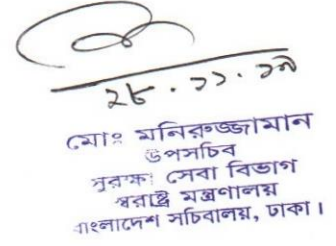 ২৮.১১.১৯
মোঃ মনিরুজ্জামান
উপসচিব
সুরক্ষা সেবা বিভাগ
স্বরাষ্ট্র মন্ত্রণালয়
বাংলাদেশ সচিবালয়, ঢাকা।